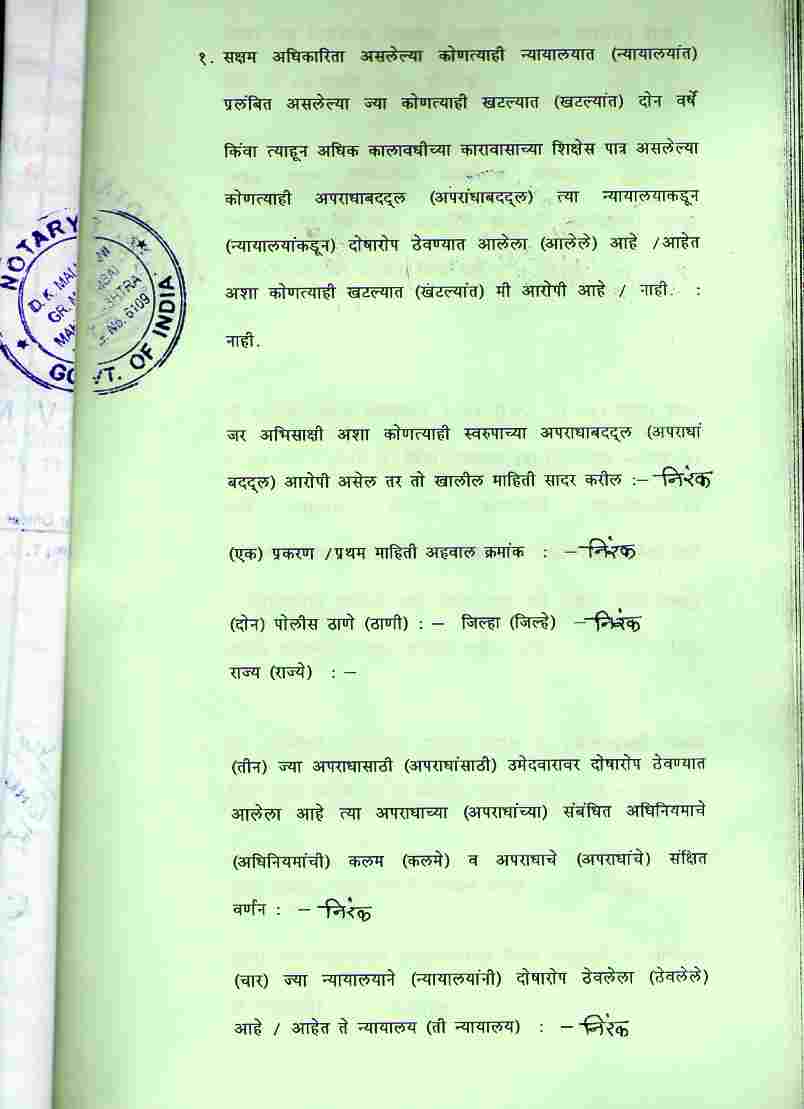 १. सक्षम अधिकारिता असलेल्या कोणत्याही न्यायालयात (न्यायालयांत)
प्रलंबित असलेल्या ज्या कोणत्याही खटल्यात (खटल्यांत) दोन वर्षे
किंवा त्याहून अधिक कालावधीच्या कारावासाच्या शिक्षेस पात्र असलेल्या
कोणत्याही अपराधाबददूल (अपराधाबददूल) त्या न्यायालयाकडून
(न्यायालयांकडून) दोषारोप ठेवण्यात आलेला (आलेले) आहे /आहेत
अशा कोणत्याही खटल्यात (खटल्यांत) मी आरोपी आहे / नाही. :
नाही.
NOTARY
D. K. MAL
GR. M
MAH
No. 6109
GOVT. OF INDIA
जर अभिसाक्षी अशा कोणत्याही स्वरुपाच्या अपराधाबददूल (अपराधां
बददूल) आरोपी असेल तर तो खालील माहिती सादर करील :— निरंक
(एक) प्रकरण /प्रथम माहिती अहवाल क्रमांक : — निरंक
(दोन) पोलीस ठाणे (ठाणी) : — जिल्हा (जिल्हे) — निरंक
राज्य (राज्ये) : —
(तीन) ज्या अपराधासाठी (अपराधांसाठी) उमेदवारावर दोषारोप ठेवण्यात
आलेला आहे त्या अपराधाच्या (अपराधांच्या) संबंधित अधिनियमाचे
(अधिनियमांची) कलम (कलमे) व अपराधाचे (अपराधांचे) संक्षित
वर्णन : — निरंक
(चार) ज्या न्यायालयाने (न्यायालयांनी) दोषारोप ठेवलेला (ठेवलेले)
आहे / आहेत ते न्यायालय (ती न्यायालय) : — निरंक